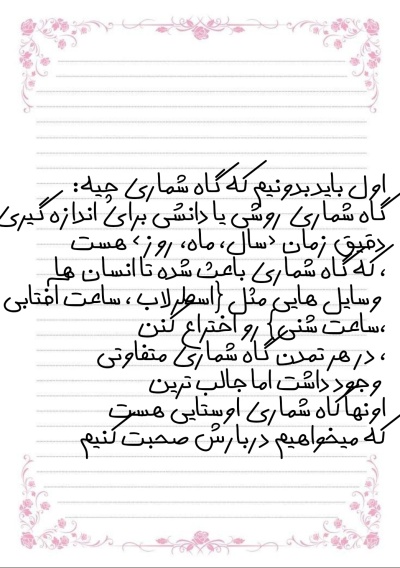 اول باید بدونیم که گاه شماری چیه:
گاه شماری روشی یا دانشی برای اندازه گیری
دقیق زمان <سال، ماه، روز> هست
، که گاه شماری باعث شده تا انسان ها
وسایل هایی مثل {اسطرلاب ، ساعت آفتابی
،ساعت شنی} رو اختراع کنن
، در هر تمدن گاه شماری متفاوتی
وجود داشت اما جالب ترین
اونها گاه شماری اوستایی هست
که میخواهیم دربارش صحبت کنیم